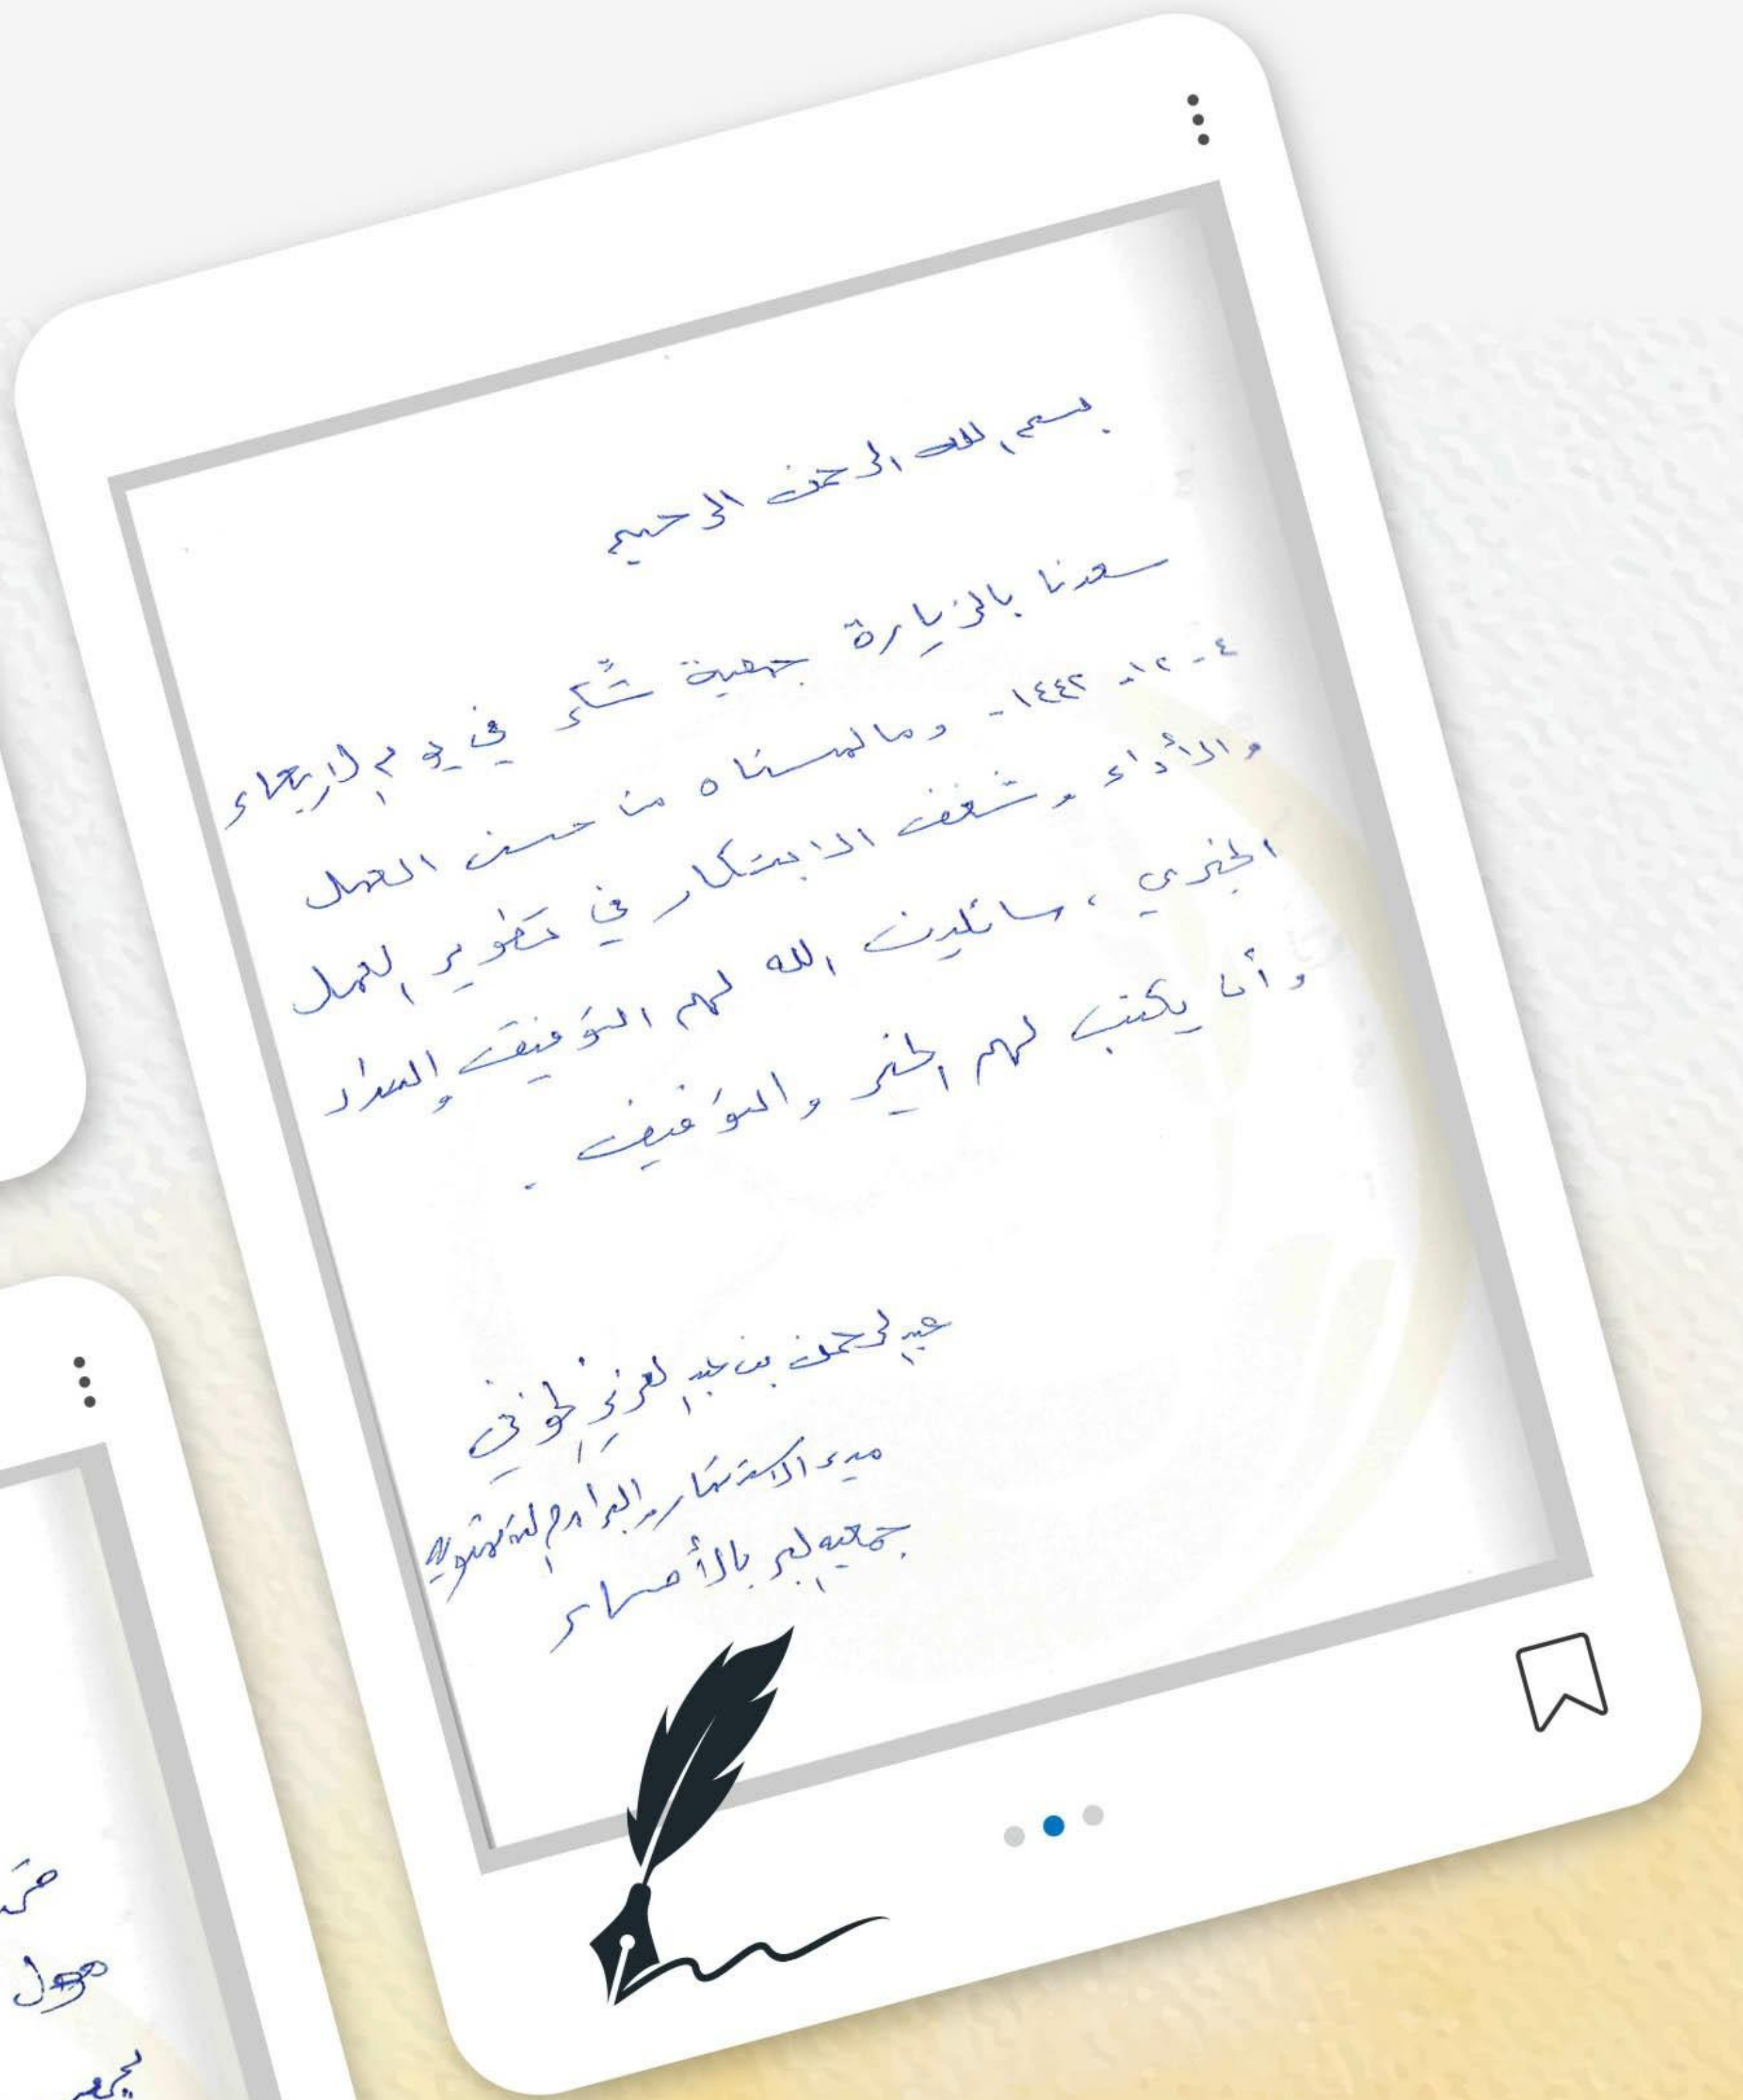 بسم الله الرحمن الرحيم
سعدنا بالزيارة جمعية في يوم الاربعاء
٤ - ١٢ - ١٤٤٢ - وما لمسناه من حسن العمل
والأداء وشغف الابتكار في تطوير العمل
الخيري ، سائلين الله لهم التوفيق والسداد
وأن يكتب لهم الخير والتوفيق .
عبد الرحمن بن عبد العزيز
مدير الاستثمار والبرامج التنموية
جمعية البر بالأحساء
حول